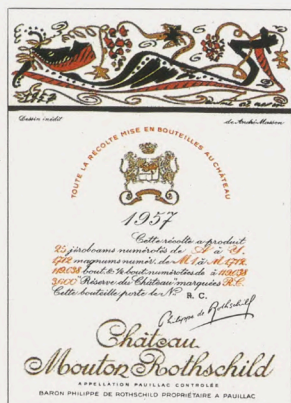 Dessin inédit
de André Masson
TOUTE LA RÉCOLTE MISE EN BOUTEILLES AU CHÂTEAU
1957
Cette récolte a produit
25 jéroboams numérotés de A à
magnums numér. de M.1 à M.
bout. & ½ bout. numérotées de à
"Réserve du Château" marquées R.C.
Cette bouteille porte le No R.C.
Philippe de Rothschild
Château
Mouton Rothschild
APPELLATION PAUILLAC CONTROLÉE
BARON PHILIPPE DE ROTHSCHILD PROPRIÉTAIRE A PAUILLAC